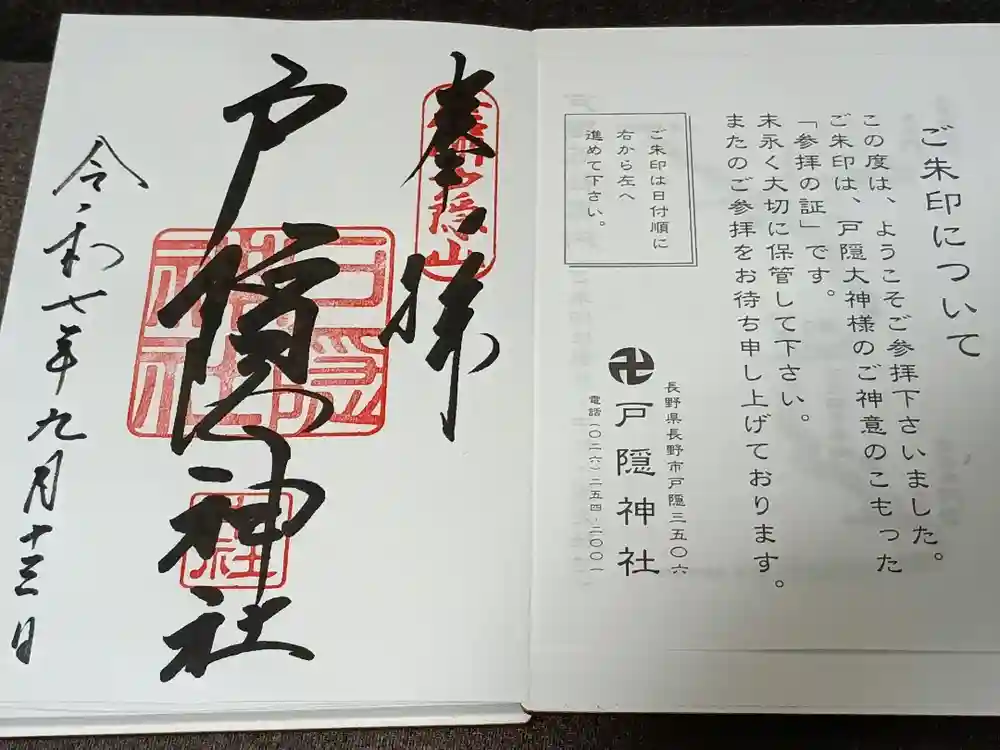 ご朱印について
この度は、ようこそご参拝下さいました。
ご朱印は、戸隠大神様のご神意のこもった
「参拝の証」です。
末永く大切に保管して下さい。
またのご参拝をお待ち申し上げております。
ご朱印は日付順に
右から左へ
進めて下さい。
長野県長野市戸隠三五〇六
卍戸隠神社
電話(〇二六)二五四・二〇〇一
奉拝
戸隠神社
令和七年九月十三日